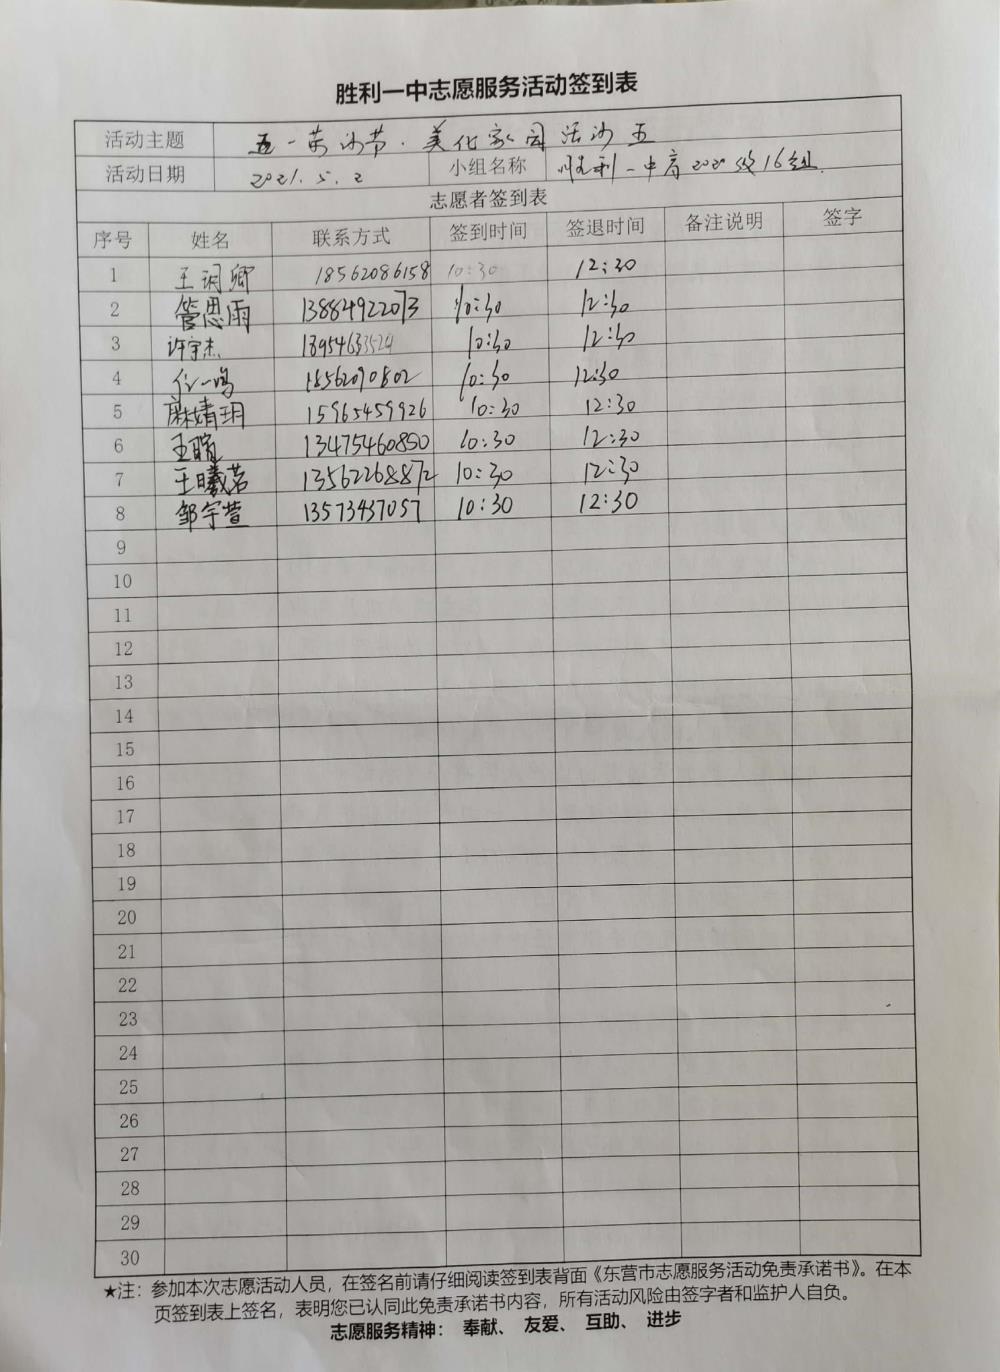 胜利一中志愿服务活动签到表
活动主题 五一劳动节·美化家园活动五
活动日期 2021.5.2 小组名称 胜利一中高2020级16组.
志愿者签到表
序号 姓名 联系方式 签到时间 签退时间 备注说明 签字
1 王 卿 18562086158 10:30 12:30
2 管思雨 13884922073 10:30 12:30
3 许宇杰 10:30 12:30
4 任一鸣 18562090802 10:30 12:30
5 麻婧玥 15965459926 10:30 12:30
6 王暄 13475460850 10:30 12:30
7 王曦茗 13562268872 10:30 12:30
8 邹宇萱 13573437057 10:30 12:30
9
10
11
12
13
14
15
16
17
18
19
20
21
22
23
24
25
26
27
28
29
30
★注：参加本次志愿活动人员，在签名前请仔细阅读签到表背面《东营市志愿服务活动免责承诺书》。在本
页签到表上签名，表明您已认同此免责承诺书内容，所有活动风险由签字者和监护人自负。
志愿服务精神： 奉献、 友爱、 互助、 进步